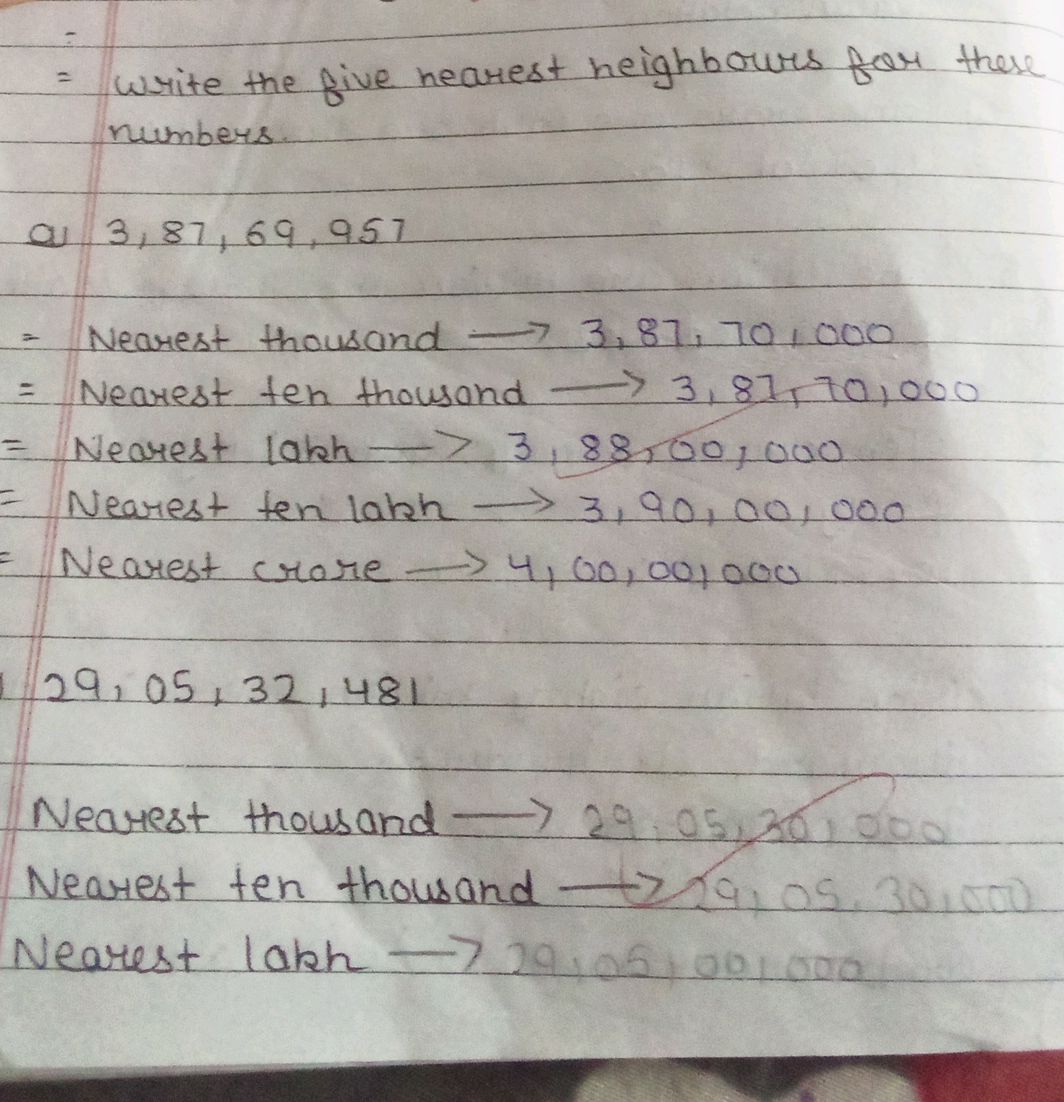 = Write the five nearest neighbours for these
numbers.
a) 3,87,69,957
= Nearest thousand → 3,87,70,000
= Nearest ten thousand → 3,87,70,000
= Nearest lakh → 3,88,00,000
= Nearest ten lakh → 3,90,00,000
= Nearest crore → 4,00,00,000
29,05,32,481
Nearest thousand → 29,05,30,000
Nearest ten thousand → 29,05,30,000
Nearest lakh → 29,05,00,000